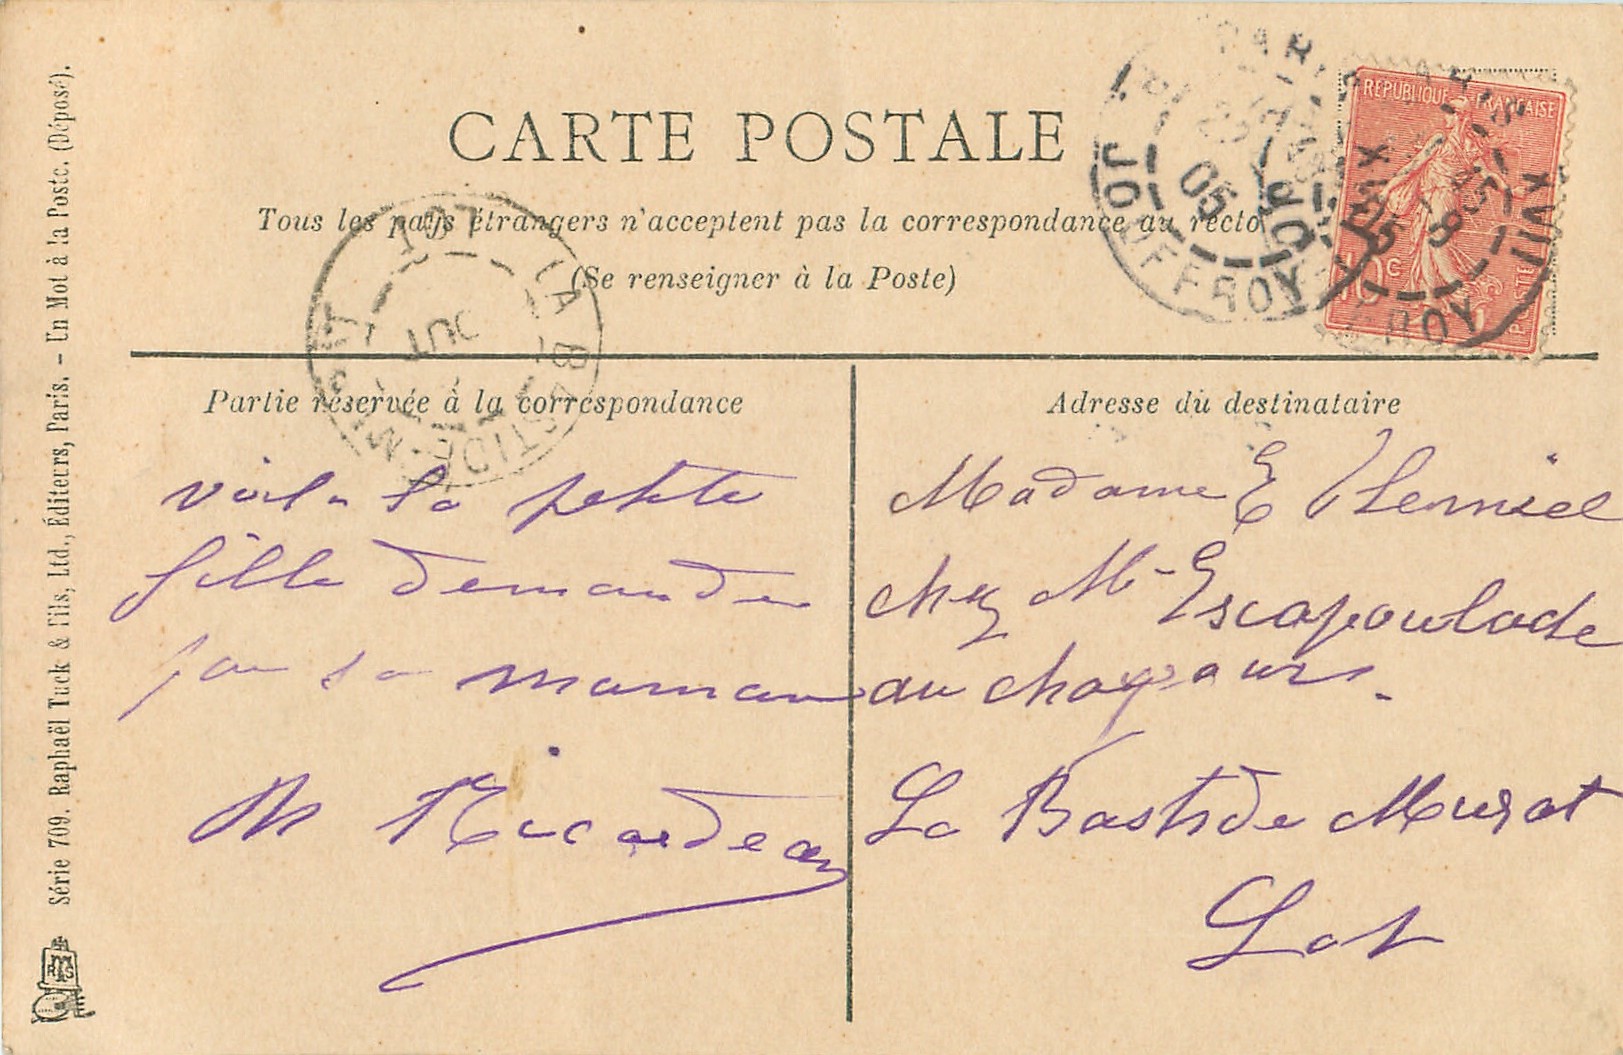 CARTE POSTALE
Tous les pays étrangers n'acceptent pas la correspondance au recto
(Se renseigner à la Poste)
Partie réservée à la correspondance
voila la petite
fille demandee
par sa maman
M Ricardeau
Adresse du destinataire
Madame E
chez Mr Escapoulade
au chapours.
La Bastide Murat
Lot
Série 709. Raphaël Tuck & Fils, Ltd., Éditeurs, Paris. - Un Mot à la Poste. (Déposé).
REPUBLIQUE FRANÇAISE
10c
POSTES
PARIS XVII
JOUFFROY
05
PARIS XVII
JOUFFROY
05
LA BASTIDE-MURAT
LOT